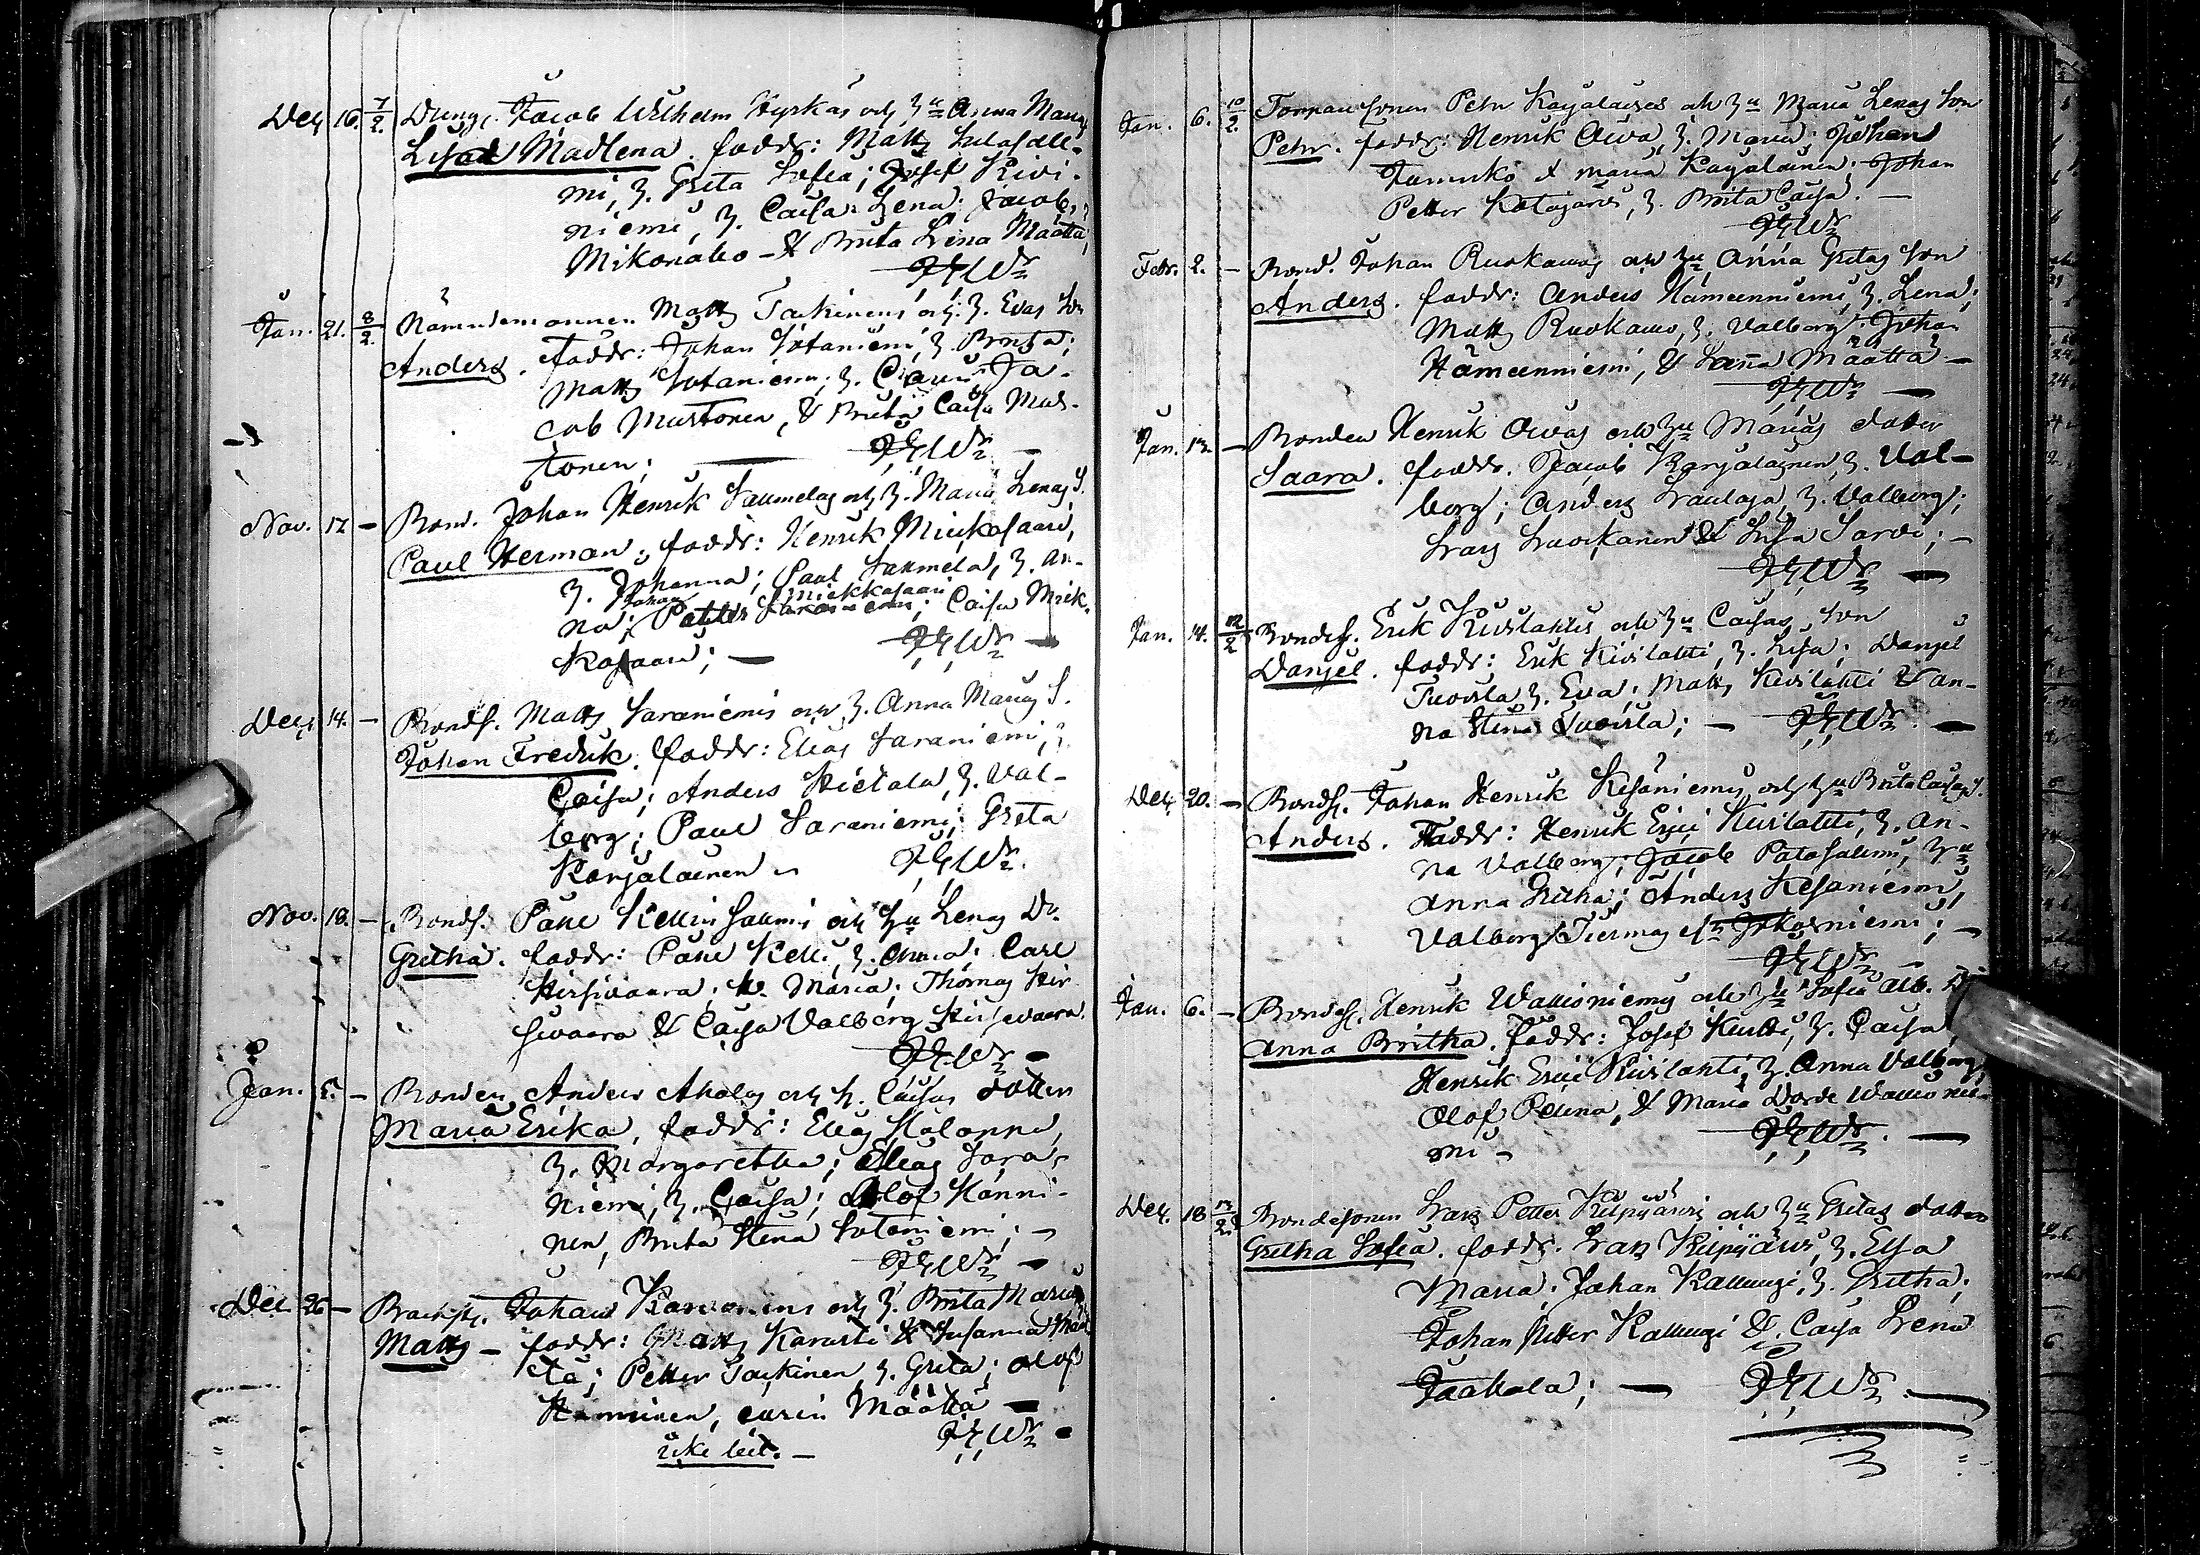 Dec. 16. 7/2. Dreng. Jacob Wilhelm Hyrkäs och h:u Anna Marias
Lisa Madlena. faddr: Matts Sulasal-
mi, h. Greta Sofia; Josef Kivi-
niemi, h. Caisa Lena; Jacob
Mikonaho & Brita Lena Määttä,
Jan. 21. 8/2. Nämndemannen Matts Tarkinens och h. Evas Son
Anders. Faddr: Johan Sotaniemi, h. Brita;
Matts Sotaniemi, h. Ja-
cob Mustonen, & Brita Caisa Mus-
tonen;
Nov. 17 — Bond. Johan Henrik Saumelas och h. Maria Lenas S.
Paul Herman; faddr: Henrik Miekasaari,
h. Johanna; Paul Saumela, h. An-
na; Johan Petter Miekkasaari; Caisa Miek-
kasaari; —
Dec. 14. — Bonds. Matts Saraniemis och h. Anna Marias S.
Johan Fredrik. faddr: Elias Saraniemi, h.
Caisa; Anders Hietala, h. Val-
borg; Paul Saraniemi; Greta
Karjalainen
Nov. 18. — Bonds. Påhl och h:u Lenas Dr.
Gretha. faddr: Påhl Kelli, h. Anna; Carl
Hirsivaara, h. Maria; Thomas Hir-
sivaara & Caisa Valborg Hirsivaara.
Jan. 5. — Bonden Anders Aholas och h. Caisas dotter
Maria Erika, faddr: Elias Halonen,
h. Margaretha; Elias Sara-
niemi, h. Caisa; Olof Hänni-
nen, Brita Stina Sotaniemi; —
Dec. 26 — Johan Karvonens och h. Brita Marias
Matts — faddr: Matts Karvosti & Susanna Määt-
tä; Petter Tarkinen, h. Greta; Olof
Hänninen, Carin Määttä —
icke leit. —
Jan. 6. 10/2. Torparesonen Petr Kayalaises och h:u Maria Lenas Son
Petr. faddr: Henrik Oiva, h. Maria; Johan
Jamsikö & Maria Kayalainen; Johan
Petter Katajärvi, h. Brita Caisa. —
Febr. 2. — Bond. Johan Ruokamos och h:u Anna Gretas Son
Anders. faddr: Anders Hämeenniemi, h. Lena;
Matts Ruokamo, h. Valborg; Johan
Hämeenniemi, & Sanna Määttä —
Jan. 13 — Bonden Henrik Oivas och h:u Marias dotter
Saara. faddr. Jacob Karjalainen, h. Val-
borg; Anders Sraulaja, h. Valborg;
Lars Luokanen & Lisa Sarvi; —
Jan. 14. 12/2 Bonds. Erik Kivilahtis och h:u Caisas, Son
Danjel. faddr: Erik Kivilahti, h. Lisa; Danjel
Tuovila, h. Eva; Matts Kivilahti & An-
na Stina Tuovila; —
Dec. 20. — Bonds. Johan Henrik Kesäniemis och h:u Brita Caisas S.
Anders. Faddr: Henrik Erici Kivilahti, h. An-
na Valborg; Jacob Patosalmi, h:u
Anna Gretha; Anders Kesäniemi,
Valborg —
Jan. 6. — Bonds. Henrik Wallioniemis och h:u Sofia Alb. D
Anna Britha. faddr: Josef Kurtti, h. Caisa
Henrik Erici Kivilahti, h. Anna Valborg;
Olof Peuna, & Maria Dorde Wallionie-
mi —
Dec. 18 Bondesonen Lars Petter Kilpijärvis och h:u Gretas dotter
Gretha Sofia. faddr. Lars Kilpijärvi, h. Elsa
Maria; Johan Kallungi, h. Gretha;
Johan Petter Kallungi & Caisa Lena
Jaakola; —